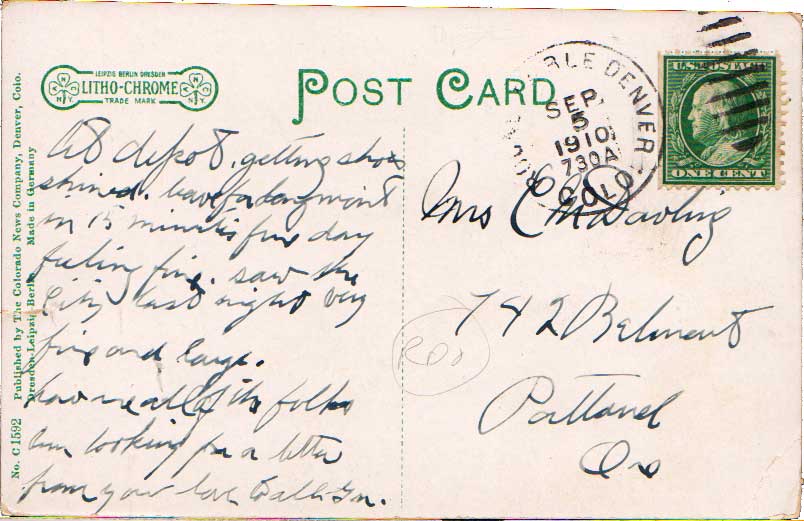 LEIPZIG BERLIN DRESDEN
LITHO-CHROME
TRADE MARK
N. Y.
N. Y.
POST CARD
DENVER
COLO
SEP
5
1910
730A
U.S. POSTAGE
ONE CENT
At depot, getting shoes
shined. leave for
in 15 minutes fine day
feeling fine. saw the
City last night very
fine and large.
all of the folks
Am looking for a letter
from your love
Mrs C M Darling
742 Belmont
Portland
Or
No. C 1592 Published by The Colorado News Company, Denver, Colo.
Dresden-Leipzig-Berlin Made in Germany